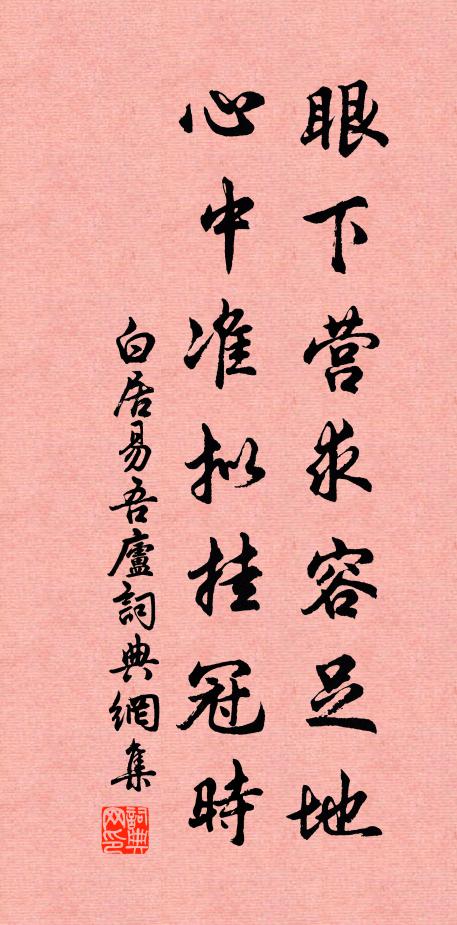 眼下营求容足地
心中准拟挂冠時
白居易吾廬詞典網集
詞典网印